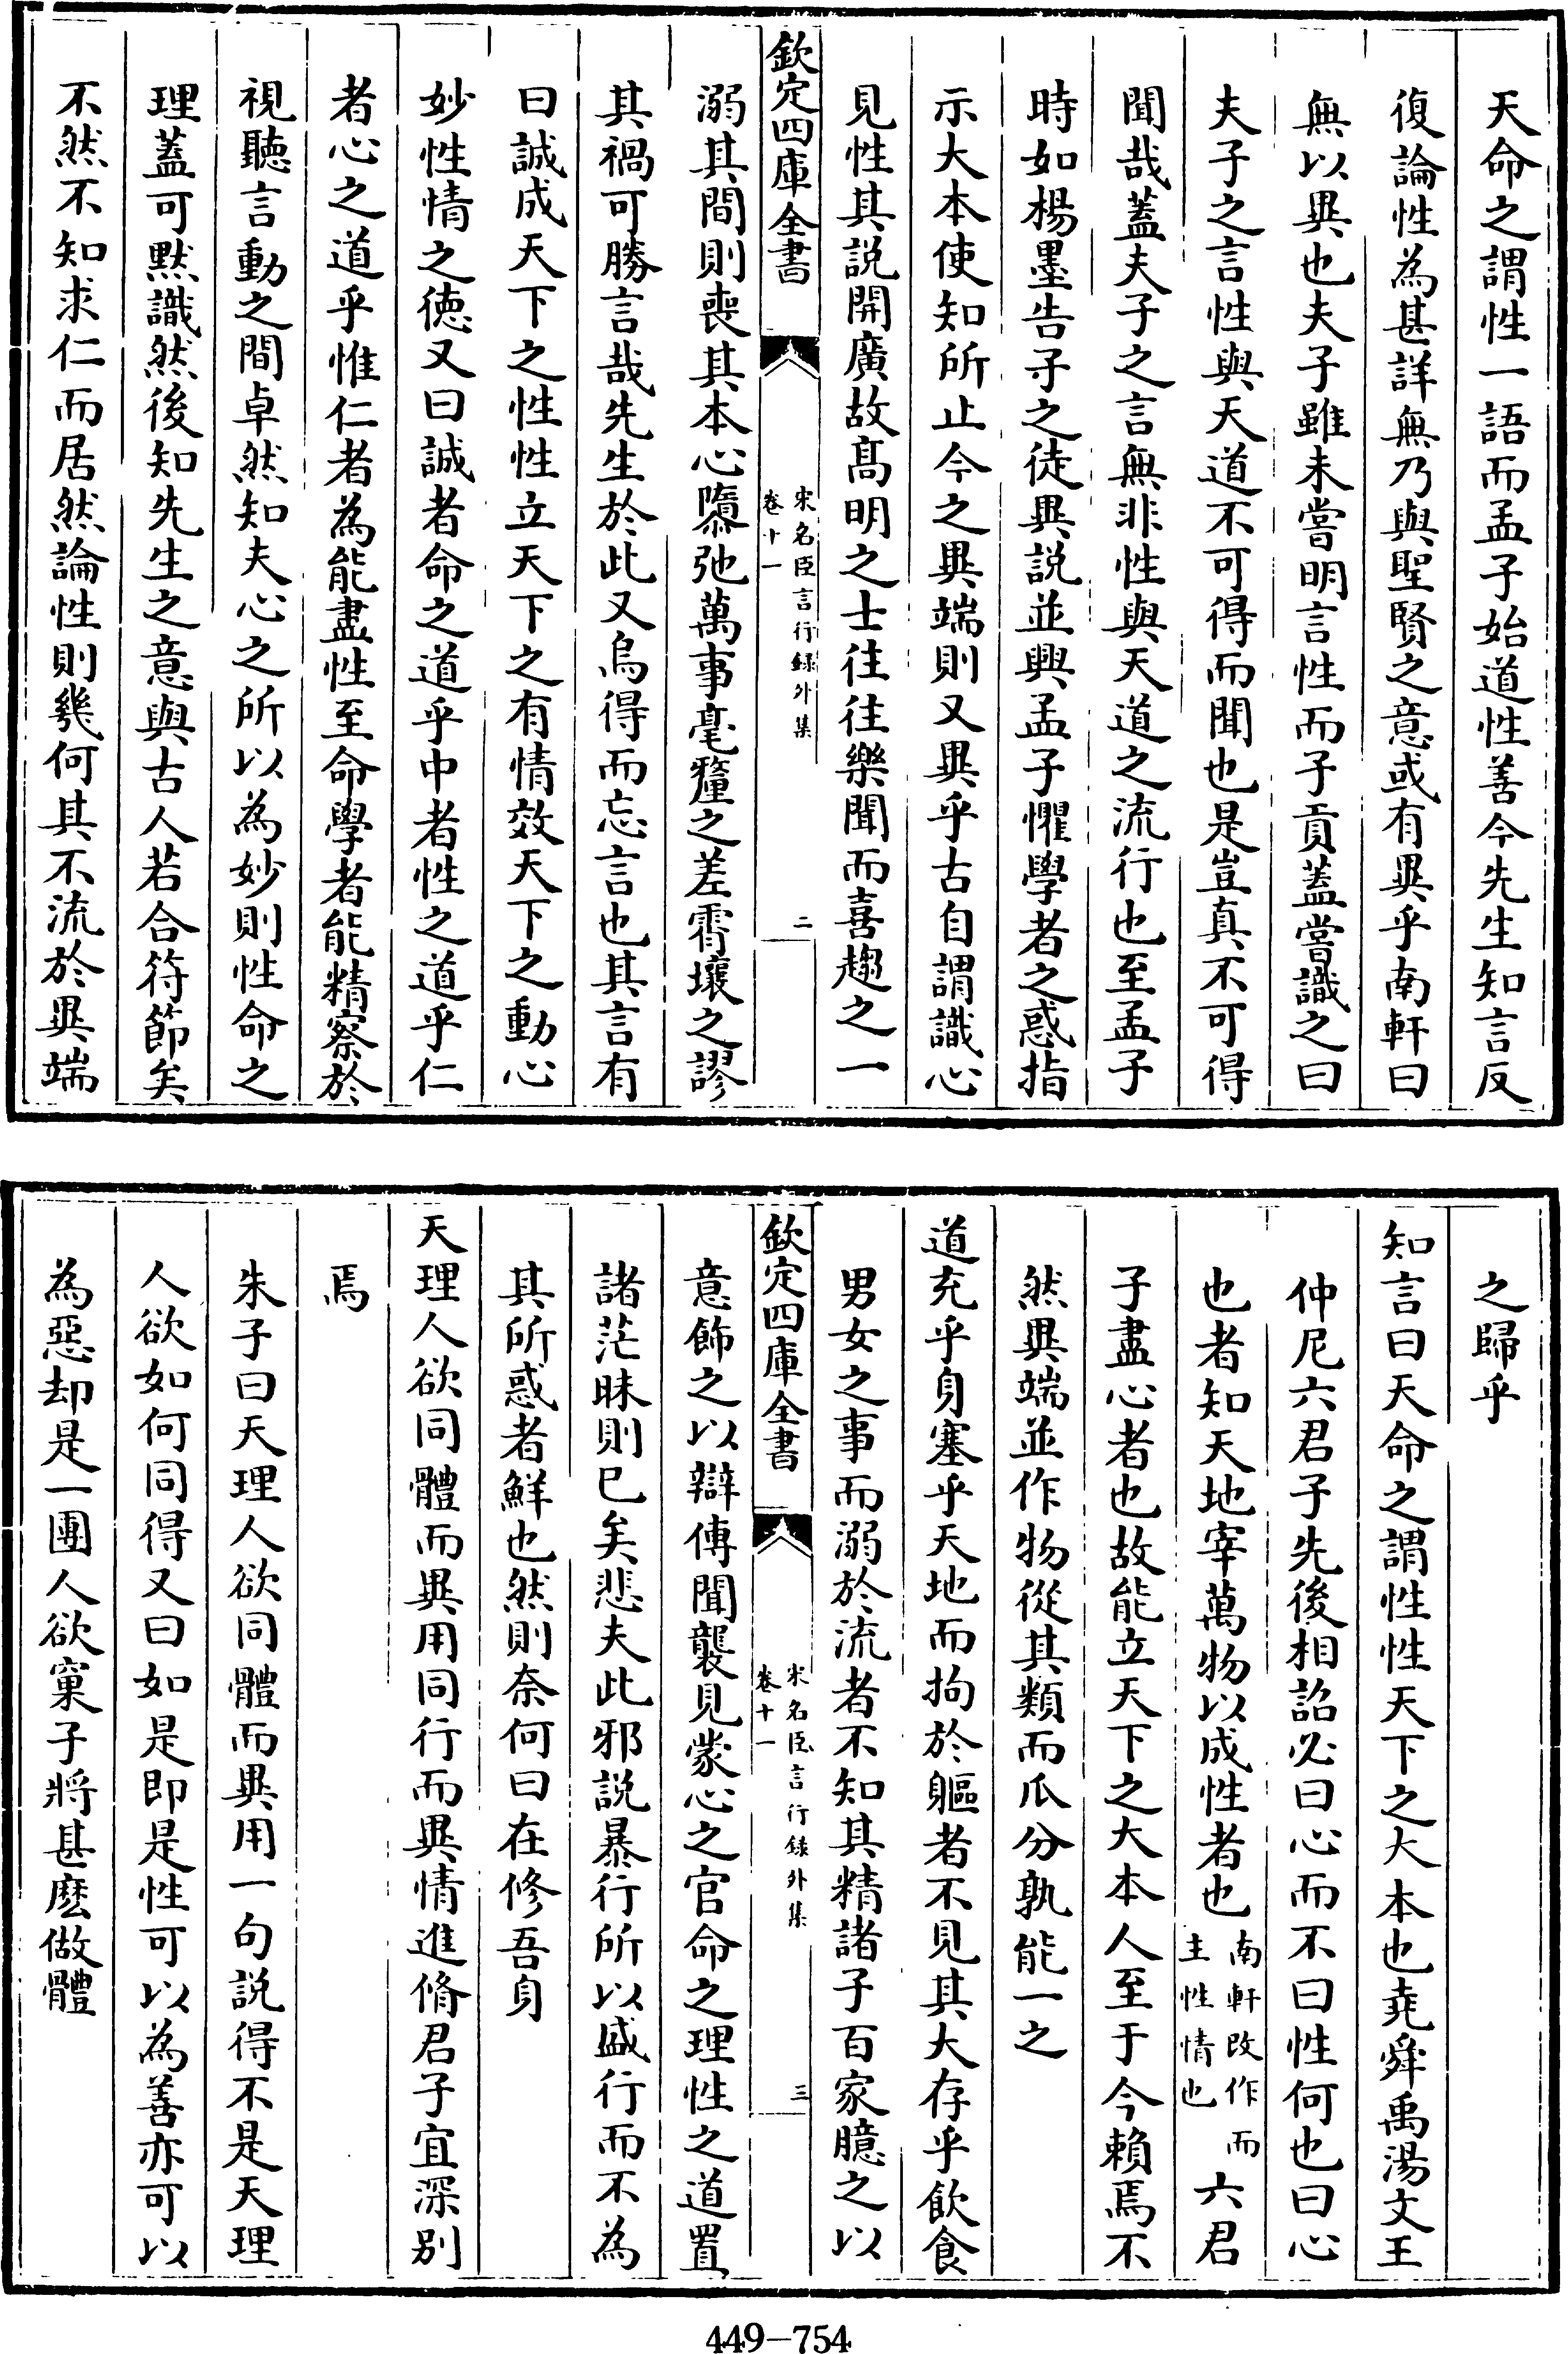 天命之謂性一語而孟子始道性善今先生知言反
復論性為甚詳無乃與聖賢之意或有異乎南軒曰
無以異也夫子雖未嘗明言性而子貢蓋嘗識之曰
夫子之言性與天道不可得而聞也是豈真不可得
聞哉蓋夫子之言無非性與天道之流行也至孟子
時如楊墨告子之徒異説並興孟子懼學者之惑指
示大本使知所止今之異端則又異乎古自謂識心
見性其説開廣故髙明之士往往樂聞而喜趨之一
欽定四庫全書
宋名臣言行録外集
卷十一
二
溺其間則喪其本心隳弛萬事毫釐之差霄壤之謬
其禍可勝言哉先生於此又烏得而忘言也其言有
曰誠成天下之性性立天下之有情效天下之動心
妙性情之徳又曰誠者命之道乎中者性之道乎仁
者心之道乎惟仁者為能盡性至命學者能精察於
視聽言動之間卓然知夫心之所以為妙則性命之
理蓋可黙識然後知先生之意與古人若合符節矣
不然不知求仁而居然論性則幾何其不流於異端
之歸乎
知言曰天命之謂性性天下之大本也堯舜禹湯文王
仲尼六君子先後相詔必曰心而不曰性何也曰心
也者知天地宰萬物以成性者也南軒改作而主性情也六君
子盡心者也故能立天下之大本人至于今賴焉不
然異端並作物從其類而瓜分孰能一之
道充乎身塞乎天地而拘於軀者不見其大存乎飲食
男女之事而溺於流者不知其精諸子百家臆之以
欽定四庫全書
宋名臣言行録外集
卷十一
三
意飾之以辯傳聞襲見蒙心之官命之理性之道置
諸茫昧則已矣悲夫此邪説暴行所以盛行而不為
其所惑者鮮也然則奈何曰在修吾身
天理人欲同體而異用同行而異情進脩君子宜深别
焉
朱子曰天理人欲同體而異用一句説得不是天理
人欲如何同得又曰如是即是性可以為善亦可以
為惡却是一團人欲窠子將甚麽做體
449—754